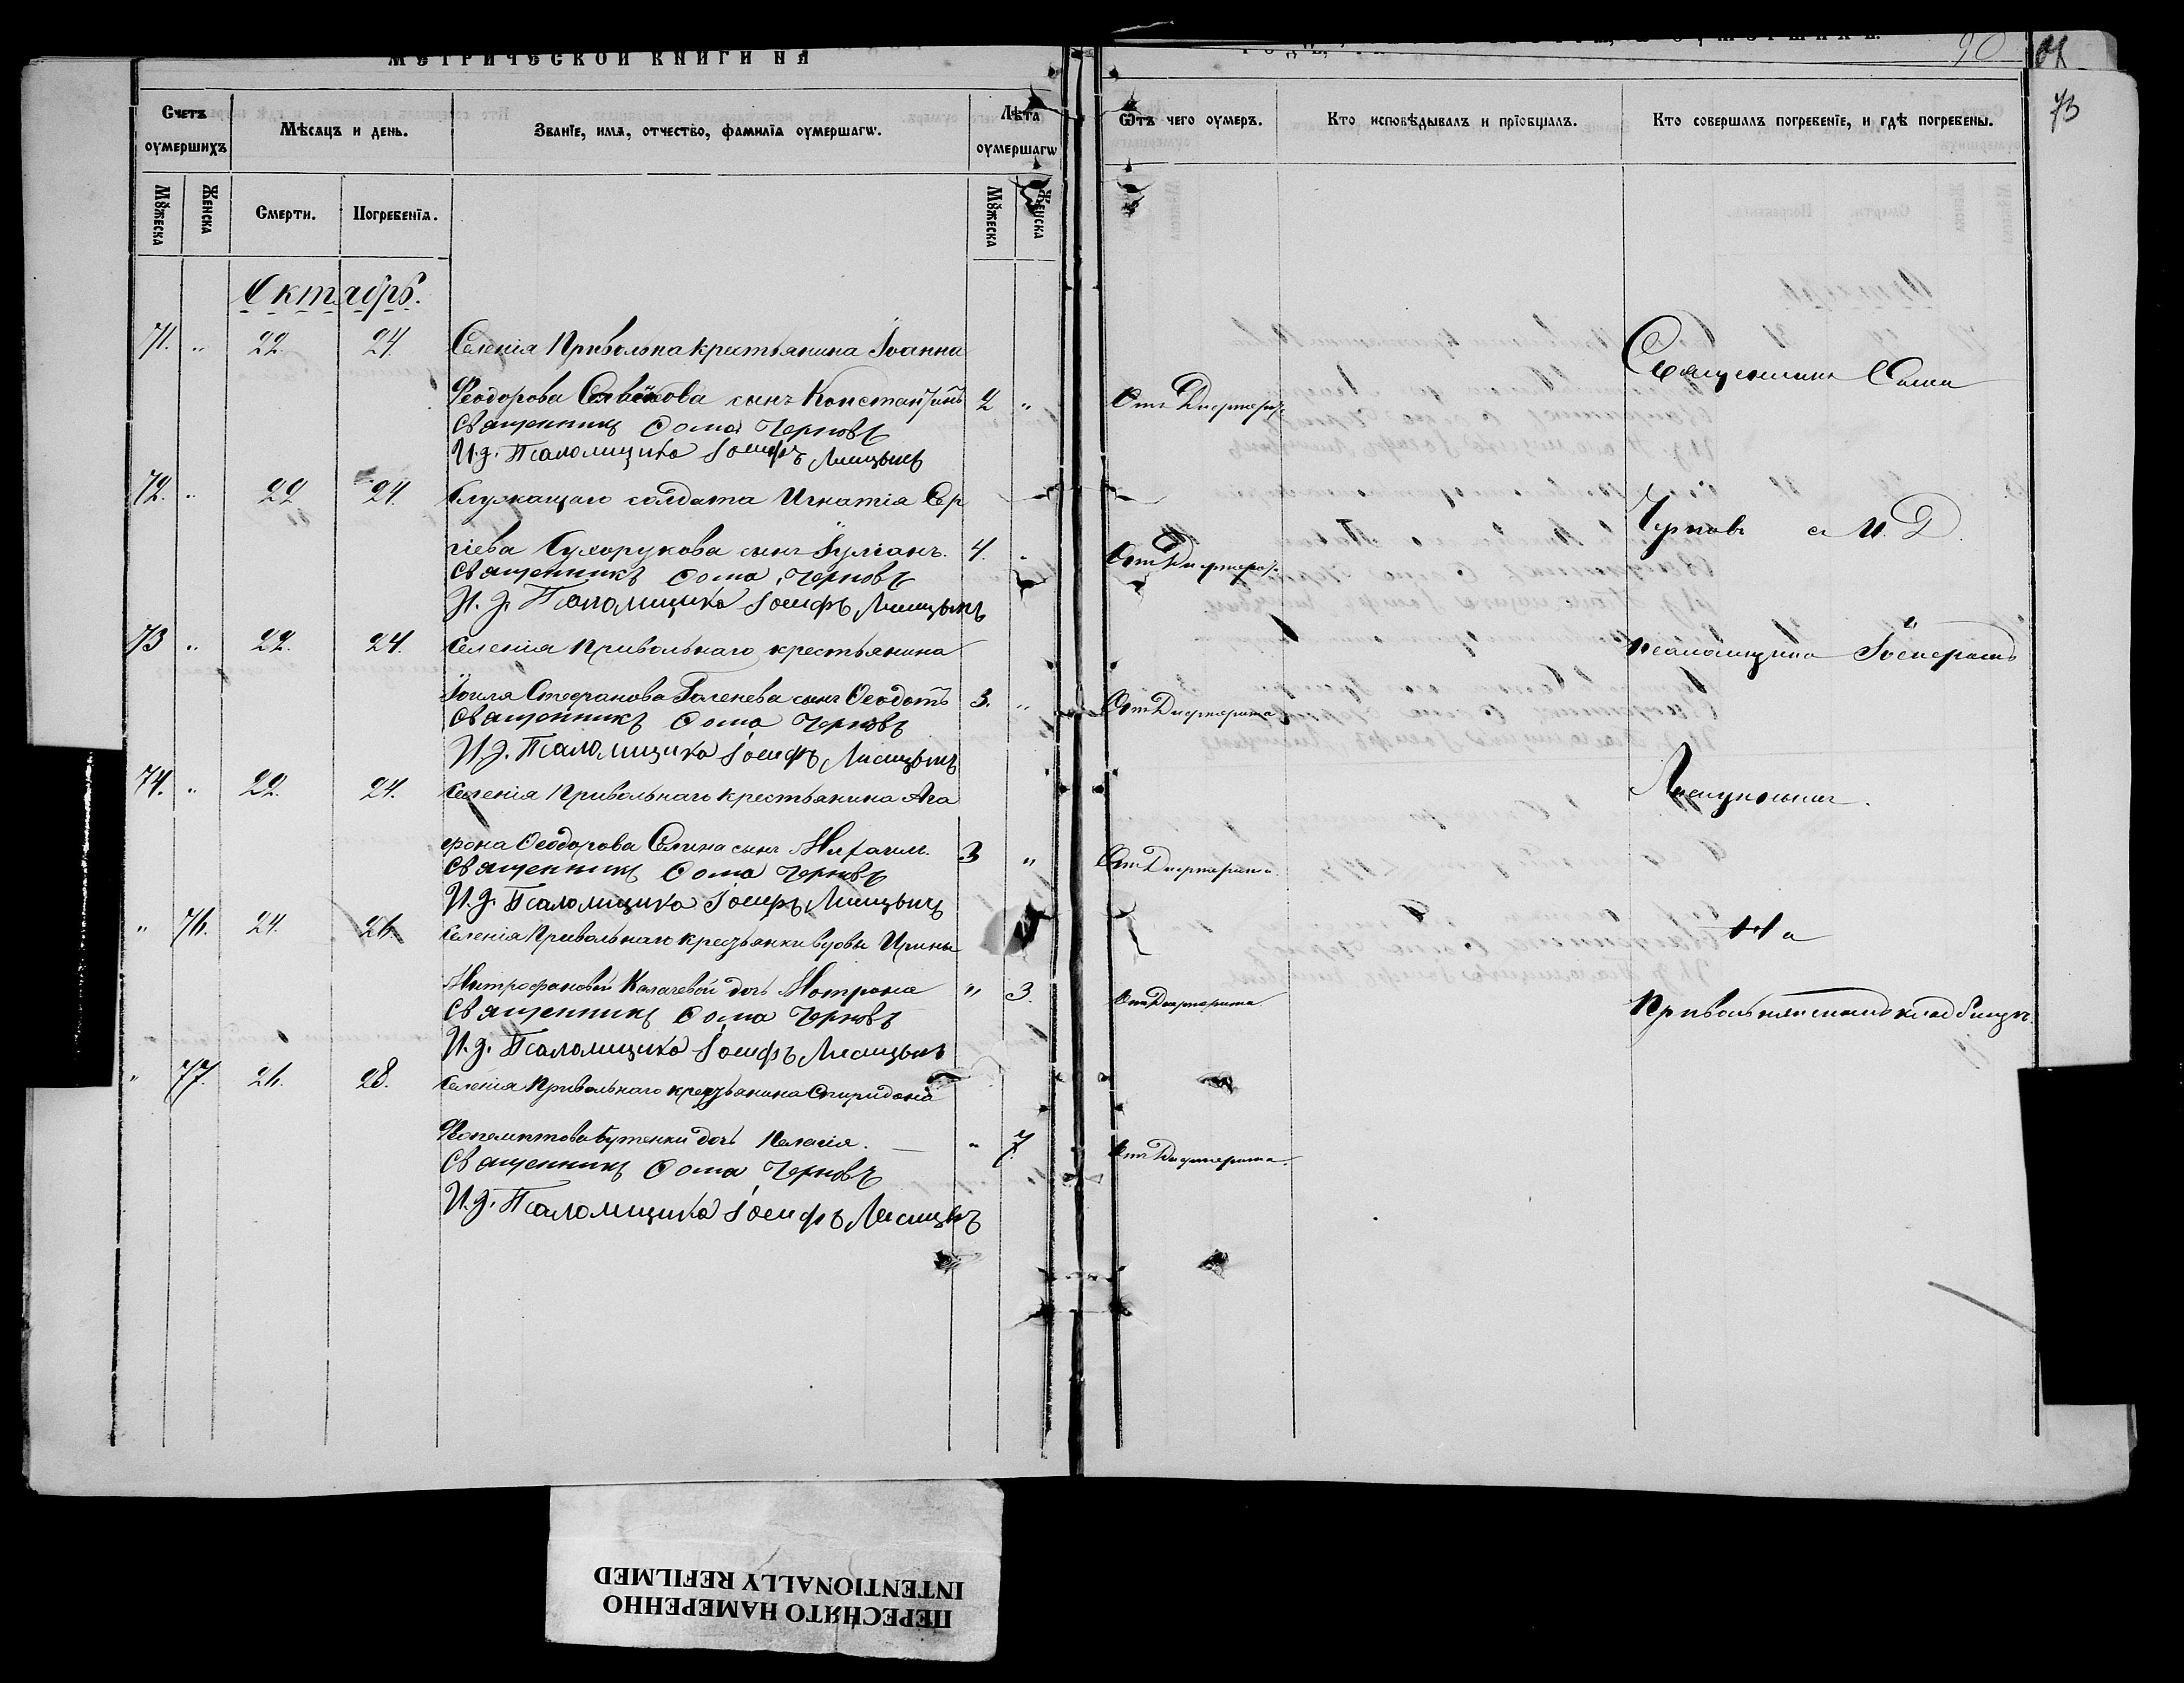 МЕТРИЧЕСКОЙ КНИГИ НА
Счетъ оумершихъ
Мѣсяцъ и день.
Званїе, имѧ, отчество, фамилїа оумершагѡ.
Лѣта оумершагѡ
Мꙋжеска
Женска
Смерти.
Погребенїѧ.
Мꙋжеска
Женска
Октябрь.
71. " 22. 24. Селенія Привольна крестьянина Іоанна
Феодорова сынъ Константинъ 2 "
Священникъ Ѳома Черновъ
И.д. Псаломщика Іосифъ Лисицынъ
72. " 22 24. Служащаго солдата Игнатія Сер
гіева Сухорукова сынъ Іуліанъ. 4. "
Священникъ Ѳома Черновъ
И.д. Псаломщика Іосифъ Лисицынъ
73 " 22. 24. Селенія Привольнаго крестьянина
Іоиля Стефанова сынъ Ѳеодотъ 3. "
Священникъ Ѳома Черновъ
И.д. Псаломщика Іосифъ Лисицынъ
74. " 22. 24. Селенія Привольнаго крестьянина Ага
фона Ѳеодорова сынъ Михаилъ. 3 "
Священникъ Ѳома Черновъ
И.д. Псаломщика Іосифъ Лисицынъ
" 76. 24. 26. Селенія Привольнаго крестьянки вдовы Ирины
Митрофановой Калачевой дочь Мотрона " 3.
Священникъ Ѳома Черновъ
И.д. Псаломщика Іосифъ Лисицынъ
" 77. 26. 28. Селенія Привольнаго крестьянина Спиридона
дочь Пелагія. " 7.
Священникъ Ѳома Черновъ
И.д. Псаломщика Іосифъ Лисицынъ
90
73
Ѿтъ чего оумеръ.
Кто исповѣдывалъ и прїобщалъ.
Кто совершалъ погребенїе, и гдѣ погребены.
Отъ Дифтерита
Отъ Дифтерита
Отъ Дифтерита
Отъ Дифтерита
Отъ Дифтерита
Отъ Дифтерита.
Священникъ Ѳома
Черновъ съ И.Д.
псаломщика Іосифомъ
Лисицынымъ.
На
Привольнянскомъ кладбищѣ.
ПЕРЕСНЯТО НАМЕРЕННО
INTENTIONALLY REFILMED